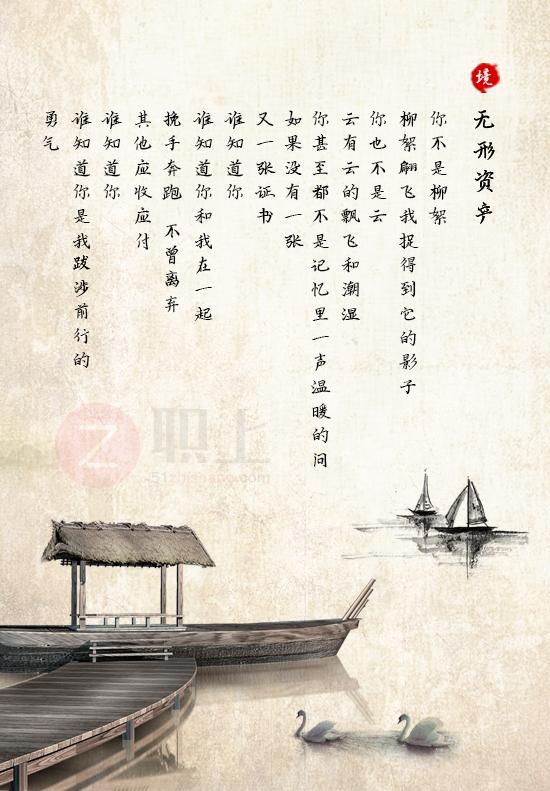 境
无形资产
你不是柳絮
柳絮翩飞我捉得到它的影子
你也不是云
云有云的飘飞和潮湿
你甚至都不是记忆里一声温暖的问
如果没有一张
又一张证书
谁知道你
谁知道你和我在一起
挽手奔跑 不曾离弃
其他应收应付
谁知道你
谁知道你是我跋涉前行的
勇气
职上